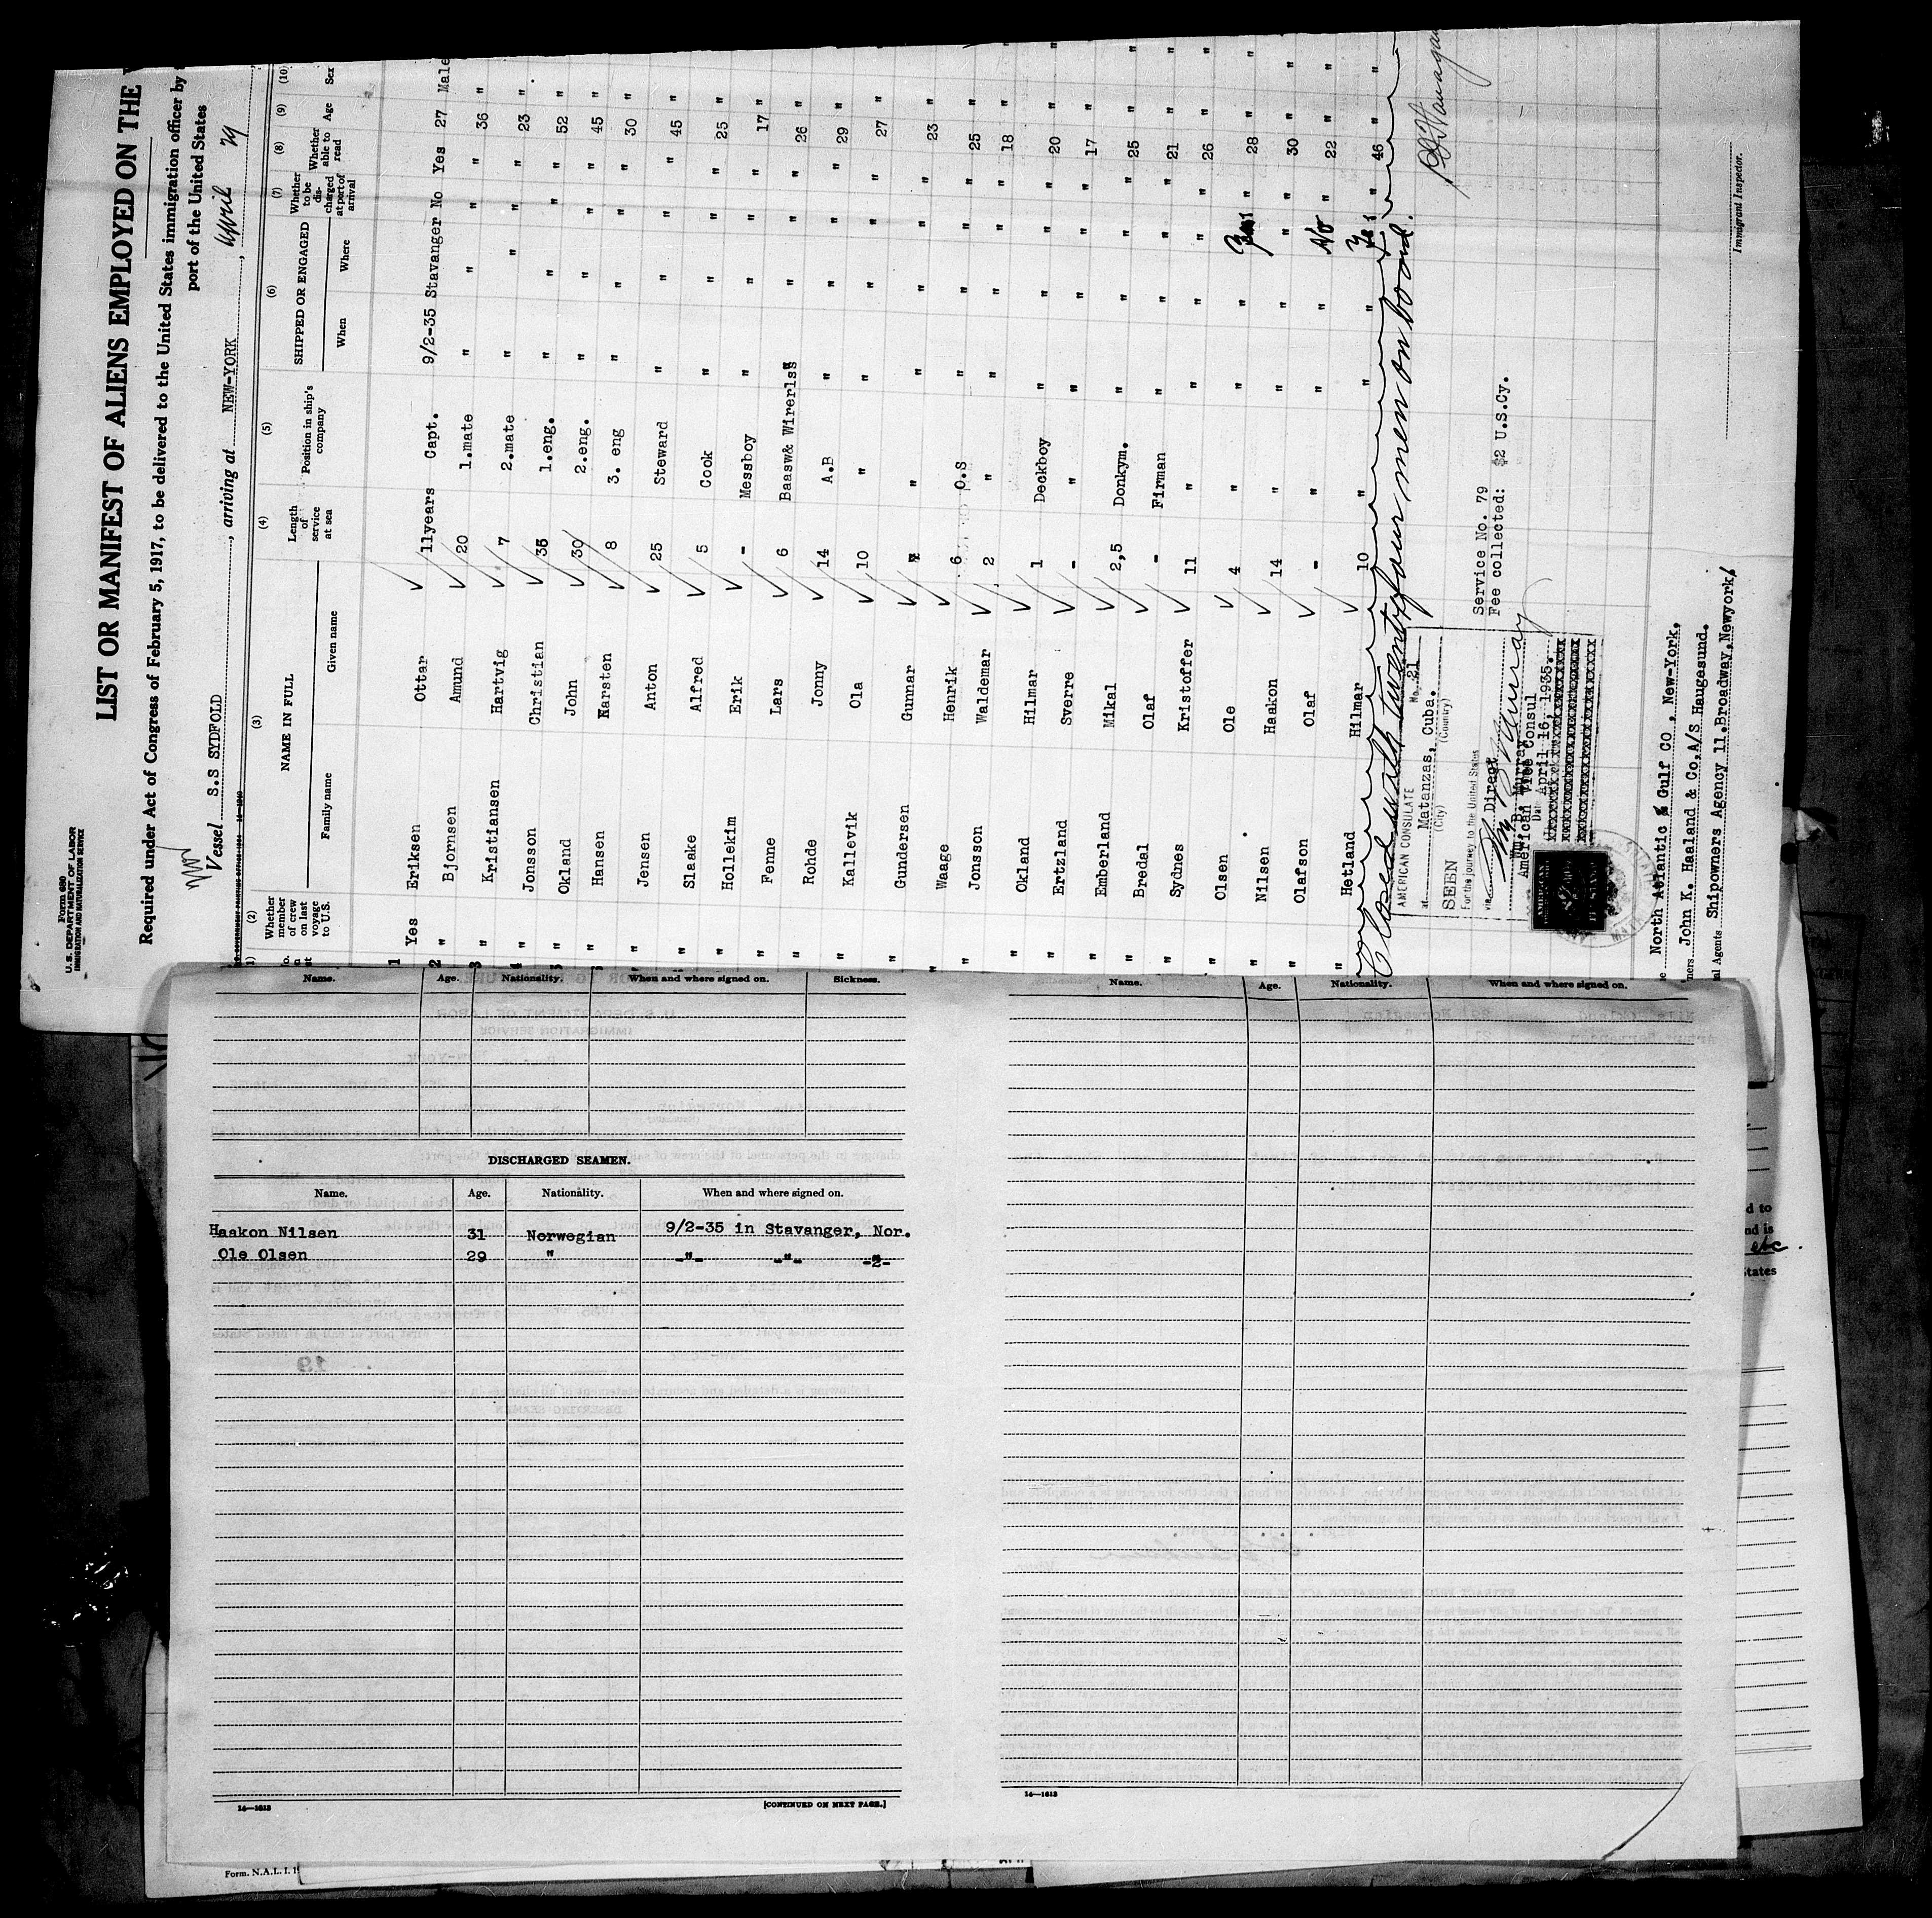 Form 680
U.S. DEPARTMENT OF LABOR
IMMIGRATION AND NATURALIZATION SERVICE
LIST OR MANIFEST OF ALIENS EMPLOYED ON THE
Required under Act of Congress of February 5, 1917, to be delivered to the United States immigration officer by
port of the United States
Vessel S.S SYDFOLD, arriving at NEW-YORK, April 29
(2) (3) (4) (5) (6) (7) (8) (9) (10)
Whether member of crew on last voyage to U.S. NAME IN FULL Length of service at sea Position in ship's company SHIPPED OR ENGAGED Whether to be discharged at port of arrival Whether able to read Age Sex
Family name Given name When Where
1 Yes Eriksen Ottar 11years Capt. 9/2-35 Stavanger No Yes 27 Male
2 " Bjornsen Amund 20 1.mate " " " " 36 "
3 " Kristiansen Hartvig 7 2.mate " " " " 23 "
4 " Jonsson Christian 36 1.eng. " " " " 52 "
" Okland John 30 2.eng. " " " " 45 "
" Hansen Karsten 8 3. eng " " " " 30 "
" Jensen Anton 25 Steward " " " " 45 "
" Slaake Alfred 5 Cook " " " " 25 "
" Hollekim Erik - Messboy " " " " 17 "
" Fenne Lars 6 Baasw& Wirerlss " " " " 26 "
" Rohde Jonny 14 A.B " " " " 29 "
" Kallevik Ola 10 " " " " " 27 "
" Gundersen Gunnar " " " " " 23 "
" Waage Henrik 6 O.S " " " " 25 "
" Jonsson Waldemar 2 " " " " " 18 "
" Okland Hilmar 1 Deckboy " " " " 20 "
" Ertzland Sverre - " " " " " 17 "
" Emberland Mikal 2,5 Donkym. " " " " 25 "
" Bredal Olaf - Firman " " " " 21 "
" Sydnes Kristoffer 11 " " " " " 26 "
" Olsen Ole 4 " " " Yes " 28 "
" Nilsen Haakon 14 " " " " " 30 "
" Olafson Olaf - " " " No " 22 "
" Hetland Hilmar 10 " " " Yes " 46 "
Closed with twenty four men on board.
AMERICAN CONSULATE No. 21
at Matanzas, Cuba.
(City) (Country)
SEEN
For the journey to the United States
via Direct
Wm B Murray
Wm. B. Murray
American Vice Consul
Date April 16, 1935.
Service No. 79
Fee collected: $2 U.S.Cy.
North Atlantic & Gulf CO , New-York.
John K. Haaland & Co,A/S Haugesund.
Shipowners Agency 11.Broadway,Newyork
Immigrant Inspector.
Name. Age. Nationality. When and where signed on. Sickness.
DISCHARGED SEAMEN.
Name. Age. Nationality. When and where signed on.
Haakon Nilsen 31 Norwegian 9/2-35 in Stavanger, Nor.
Ole Olsen 29 " -"- -"- -2-
14—1613 [CONTINUED ON NEXT PAGE.]
Name. Age. Nationality. When and where signed on.
14—1613
d to
nd is
etc.
States
Form. N.A.L.I.